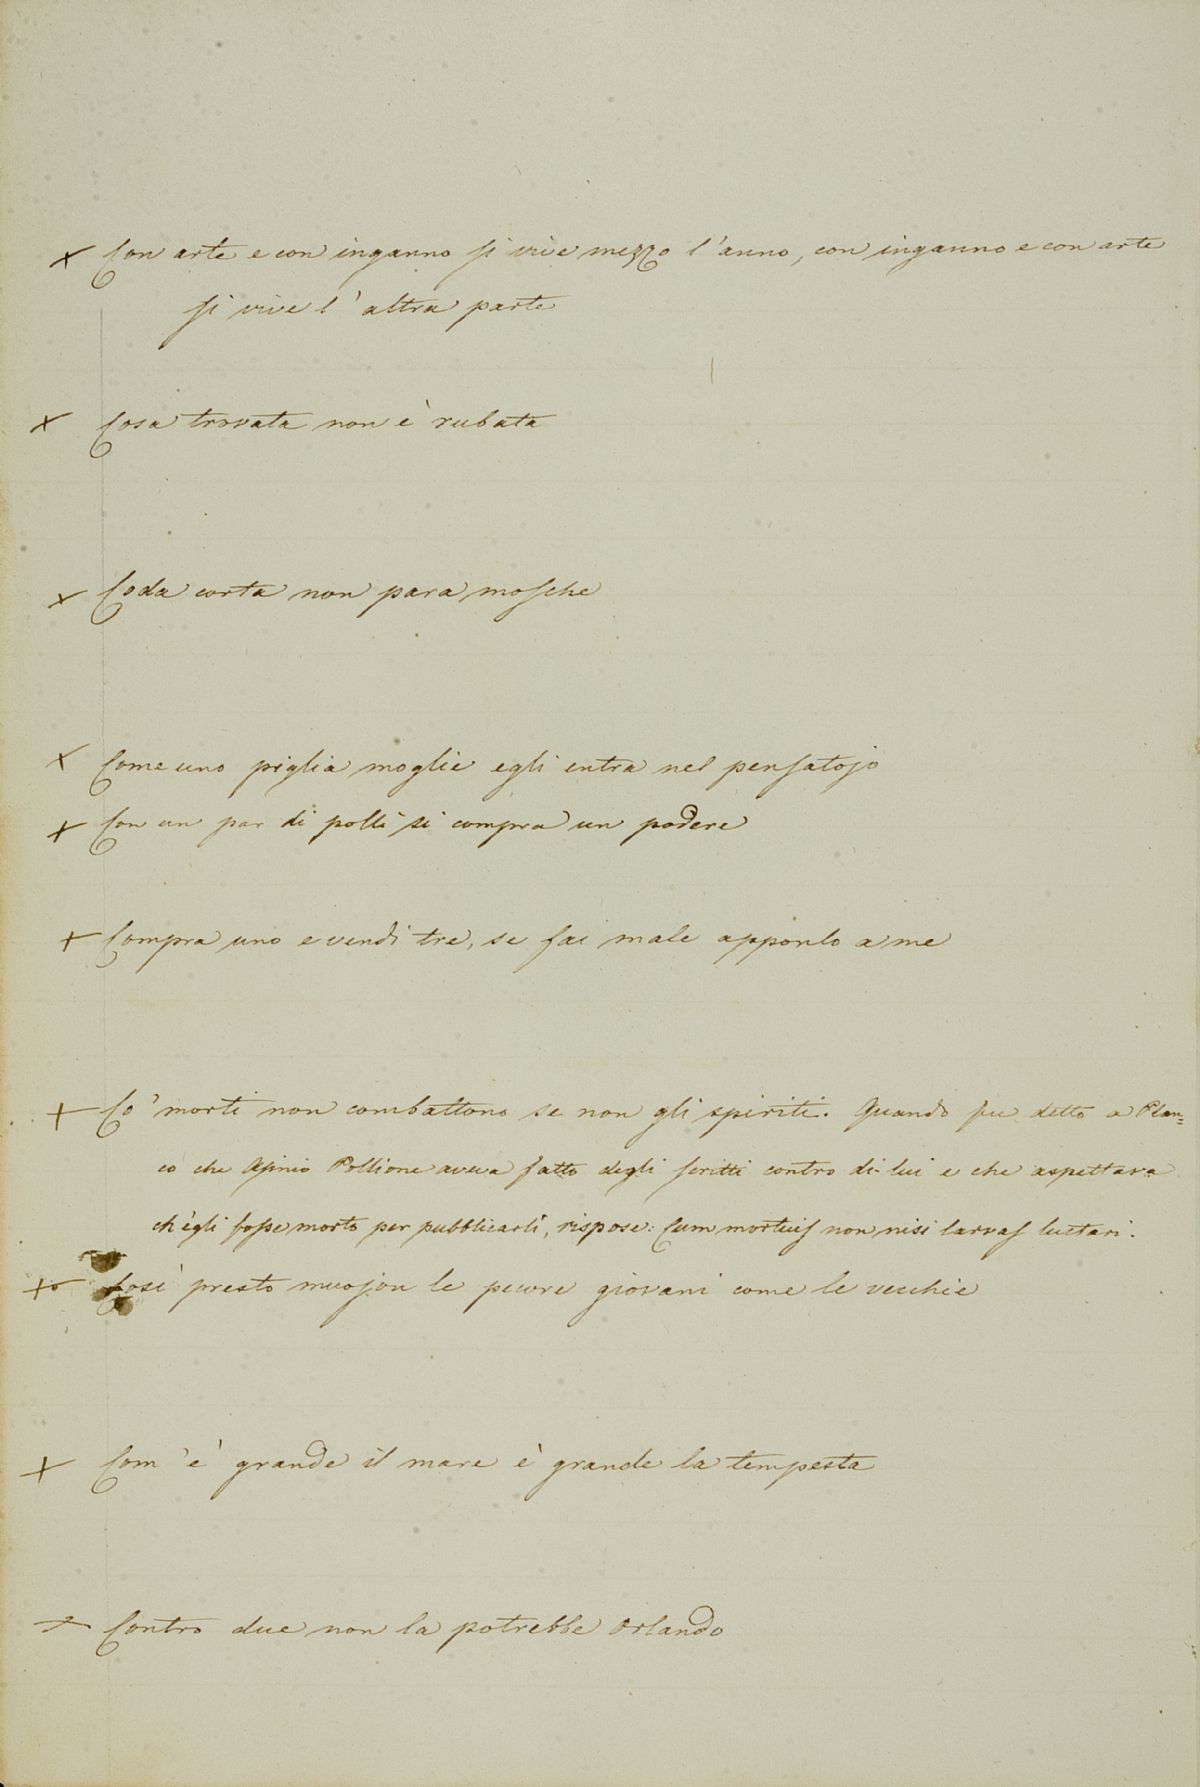 Con arte e con inganno si vive mezzo l'anno, con inganno e con arte
si vive l'altra parte
Cosa trovata non è rubata
Coda corta non para mosche
Come uno piglia moglie egli entra nel pensatojo
Con un par di polli si compra un podere
Compra uno e vendi tre, se fai male apponlo a me
Co' morti non combattono se non gli spiriti. Quando fu detto a Plan=
co che Asinio Pollione aveva fatto degli scritti contro di lui e che aspettava
ch'egli fosse morto per pubblicarli, rispose: Cum mortuis non nisi larvas luctari.
Così presto muojon le pecore giovani come le vecchie
Com'è grande il mare è grande la tempesta
Contro due non la potrebbe Orlando